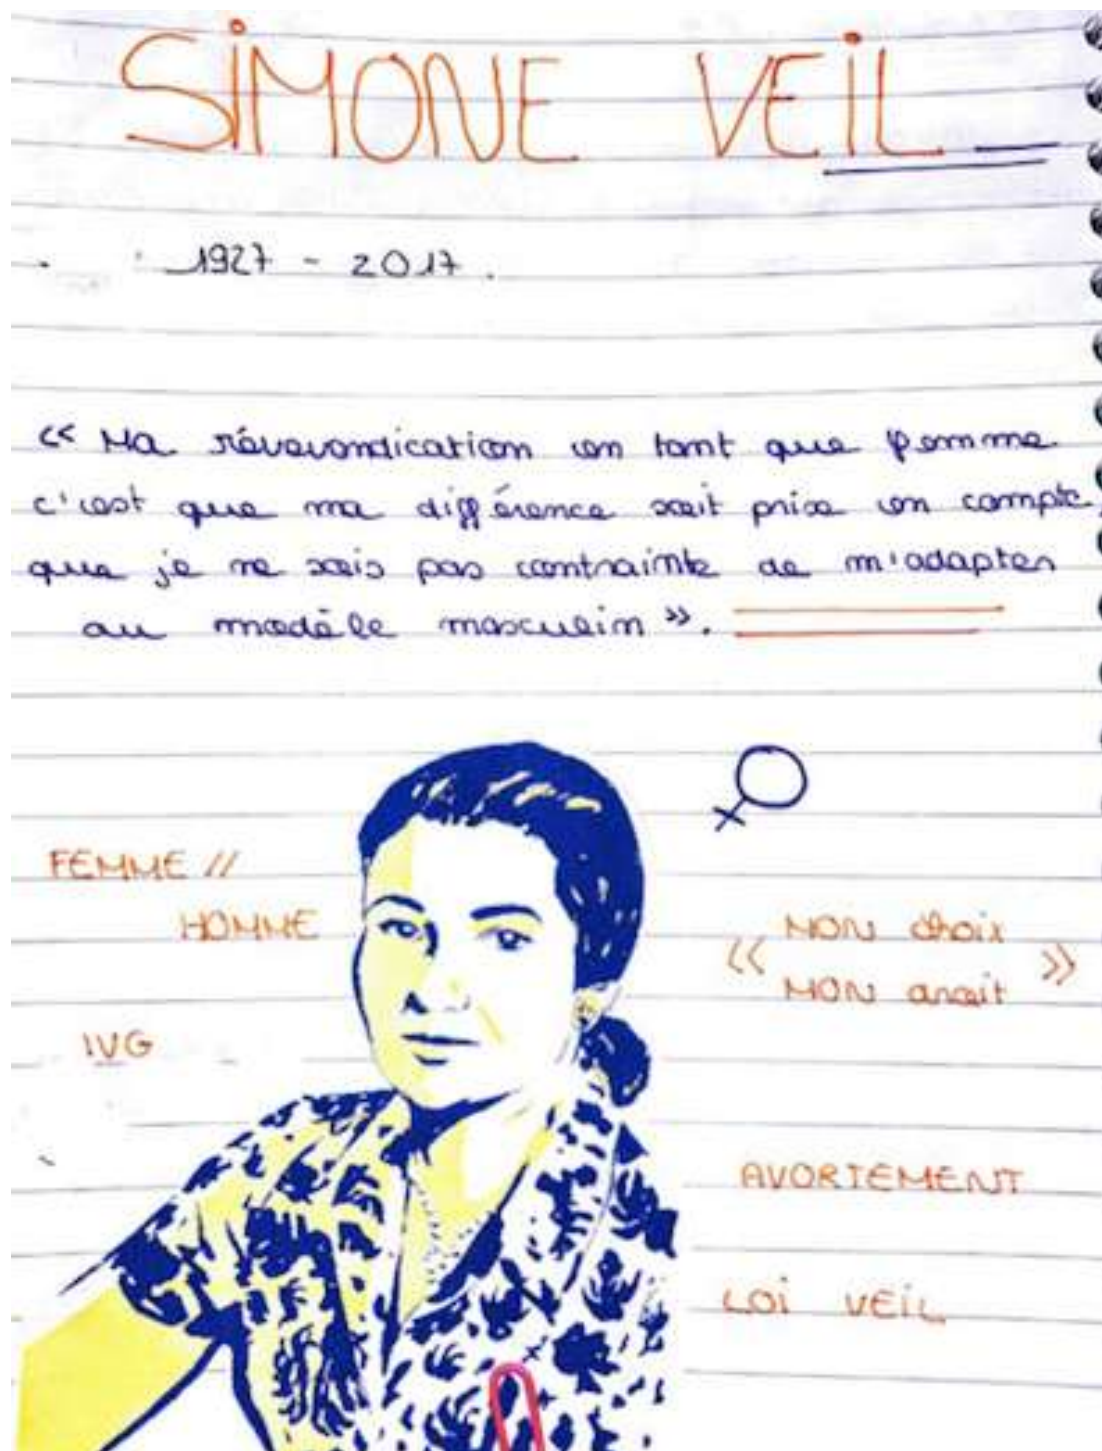 SIMONE VEIL
1927 - 2017.
<< Ma révevendication en tant que femme
c'est que ma différence soit prise en compte,
que je ne sois pas contrainte de m'adapter
au modèle masculin >>.
FEMME //
HOMME
<< MON choix
MON droit >>
IVG
AVORTEMENT
LOI VEIL